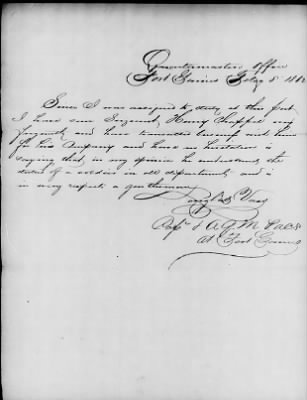 Quartermasters Office
Fort Gaines Feby 5" 186
Since I was assigned to duty at this post
I have seen Sergeant, Henry Chappel very
frequently and have transacted business with him
for his Company and have no hesitation in
saying that, in my opinion he understands the
duties of a soldier in all departments and is
in every respect a gentleman
Vass
Capt & A.Q.M. CoCS
At Fort Gaines